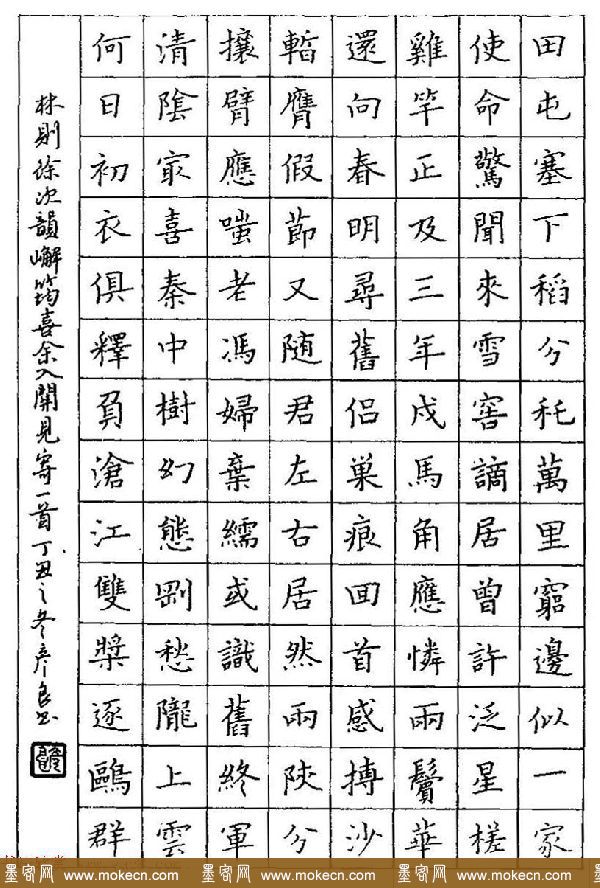 田屯塞下稻分秏萬里窮邊似一家
使命驚聞來雪窖謫居曾許泛星槎
雞竿正及三年戍馬角應憐兩鬢華
還向春明尋舊侶巢痕回首感摶沙
暫膺假節又随君左右居然兩陝分
攘臂應嗤老馮婦棄繻或識舊終軍
清陰冣喜秦中樹幻態剛愁隴上雲
何日初衣俱釋負滄江雙槳逐鷗群
林則徐次韻嶰筠喜余入關見寄一首丁丑之冬彥良書
墨客网 www.mokecn.com 墨客网 www.mokecn.com 墨客网 www.mokecn.com 墨客网 www.mokecn.com